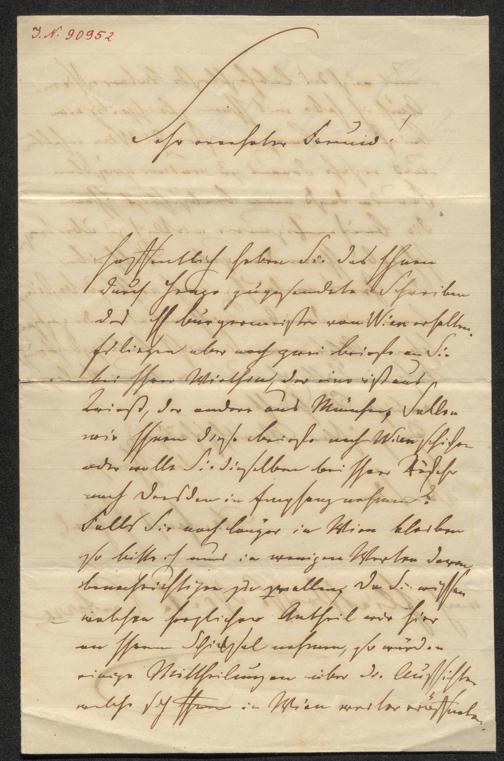 I. N. 90952
Sehr verehrter Freund!
Hoffentlich haben Sie das Ihnen
durch zugesendete Schreiben
des H Bürgermeister von Wien erhalten.
Es liegen aber noch zwei Briefe an Sie
bei Ihrer Wirthin, der eine ist aus
Triest, der andere aus München, Sollen
wir Ihnen diese Briefe nach Wien schicken
oder wollen Sie dieselben bei Ihrer Rückkehr
nach Dresden in Empfang nehmen?
Falls Sie noch länger in Wien bleiben
so bitte ich uns in wenigen Worten davon
benachrichtigen zu wollen, Da Sie wissen
welchen herzlichen Antheil wir hier
an Ihrem Schicksal nehmen, so würden
einige Mittheilungen über die Aussichten
welche sich Ihnen in Wien weiter eröffneten,